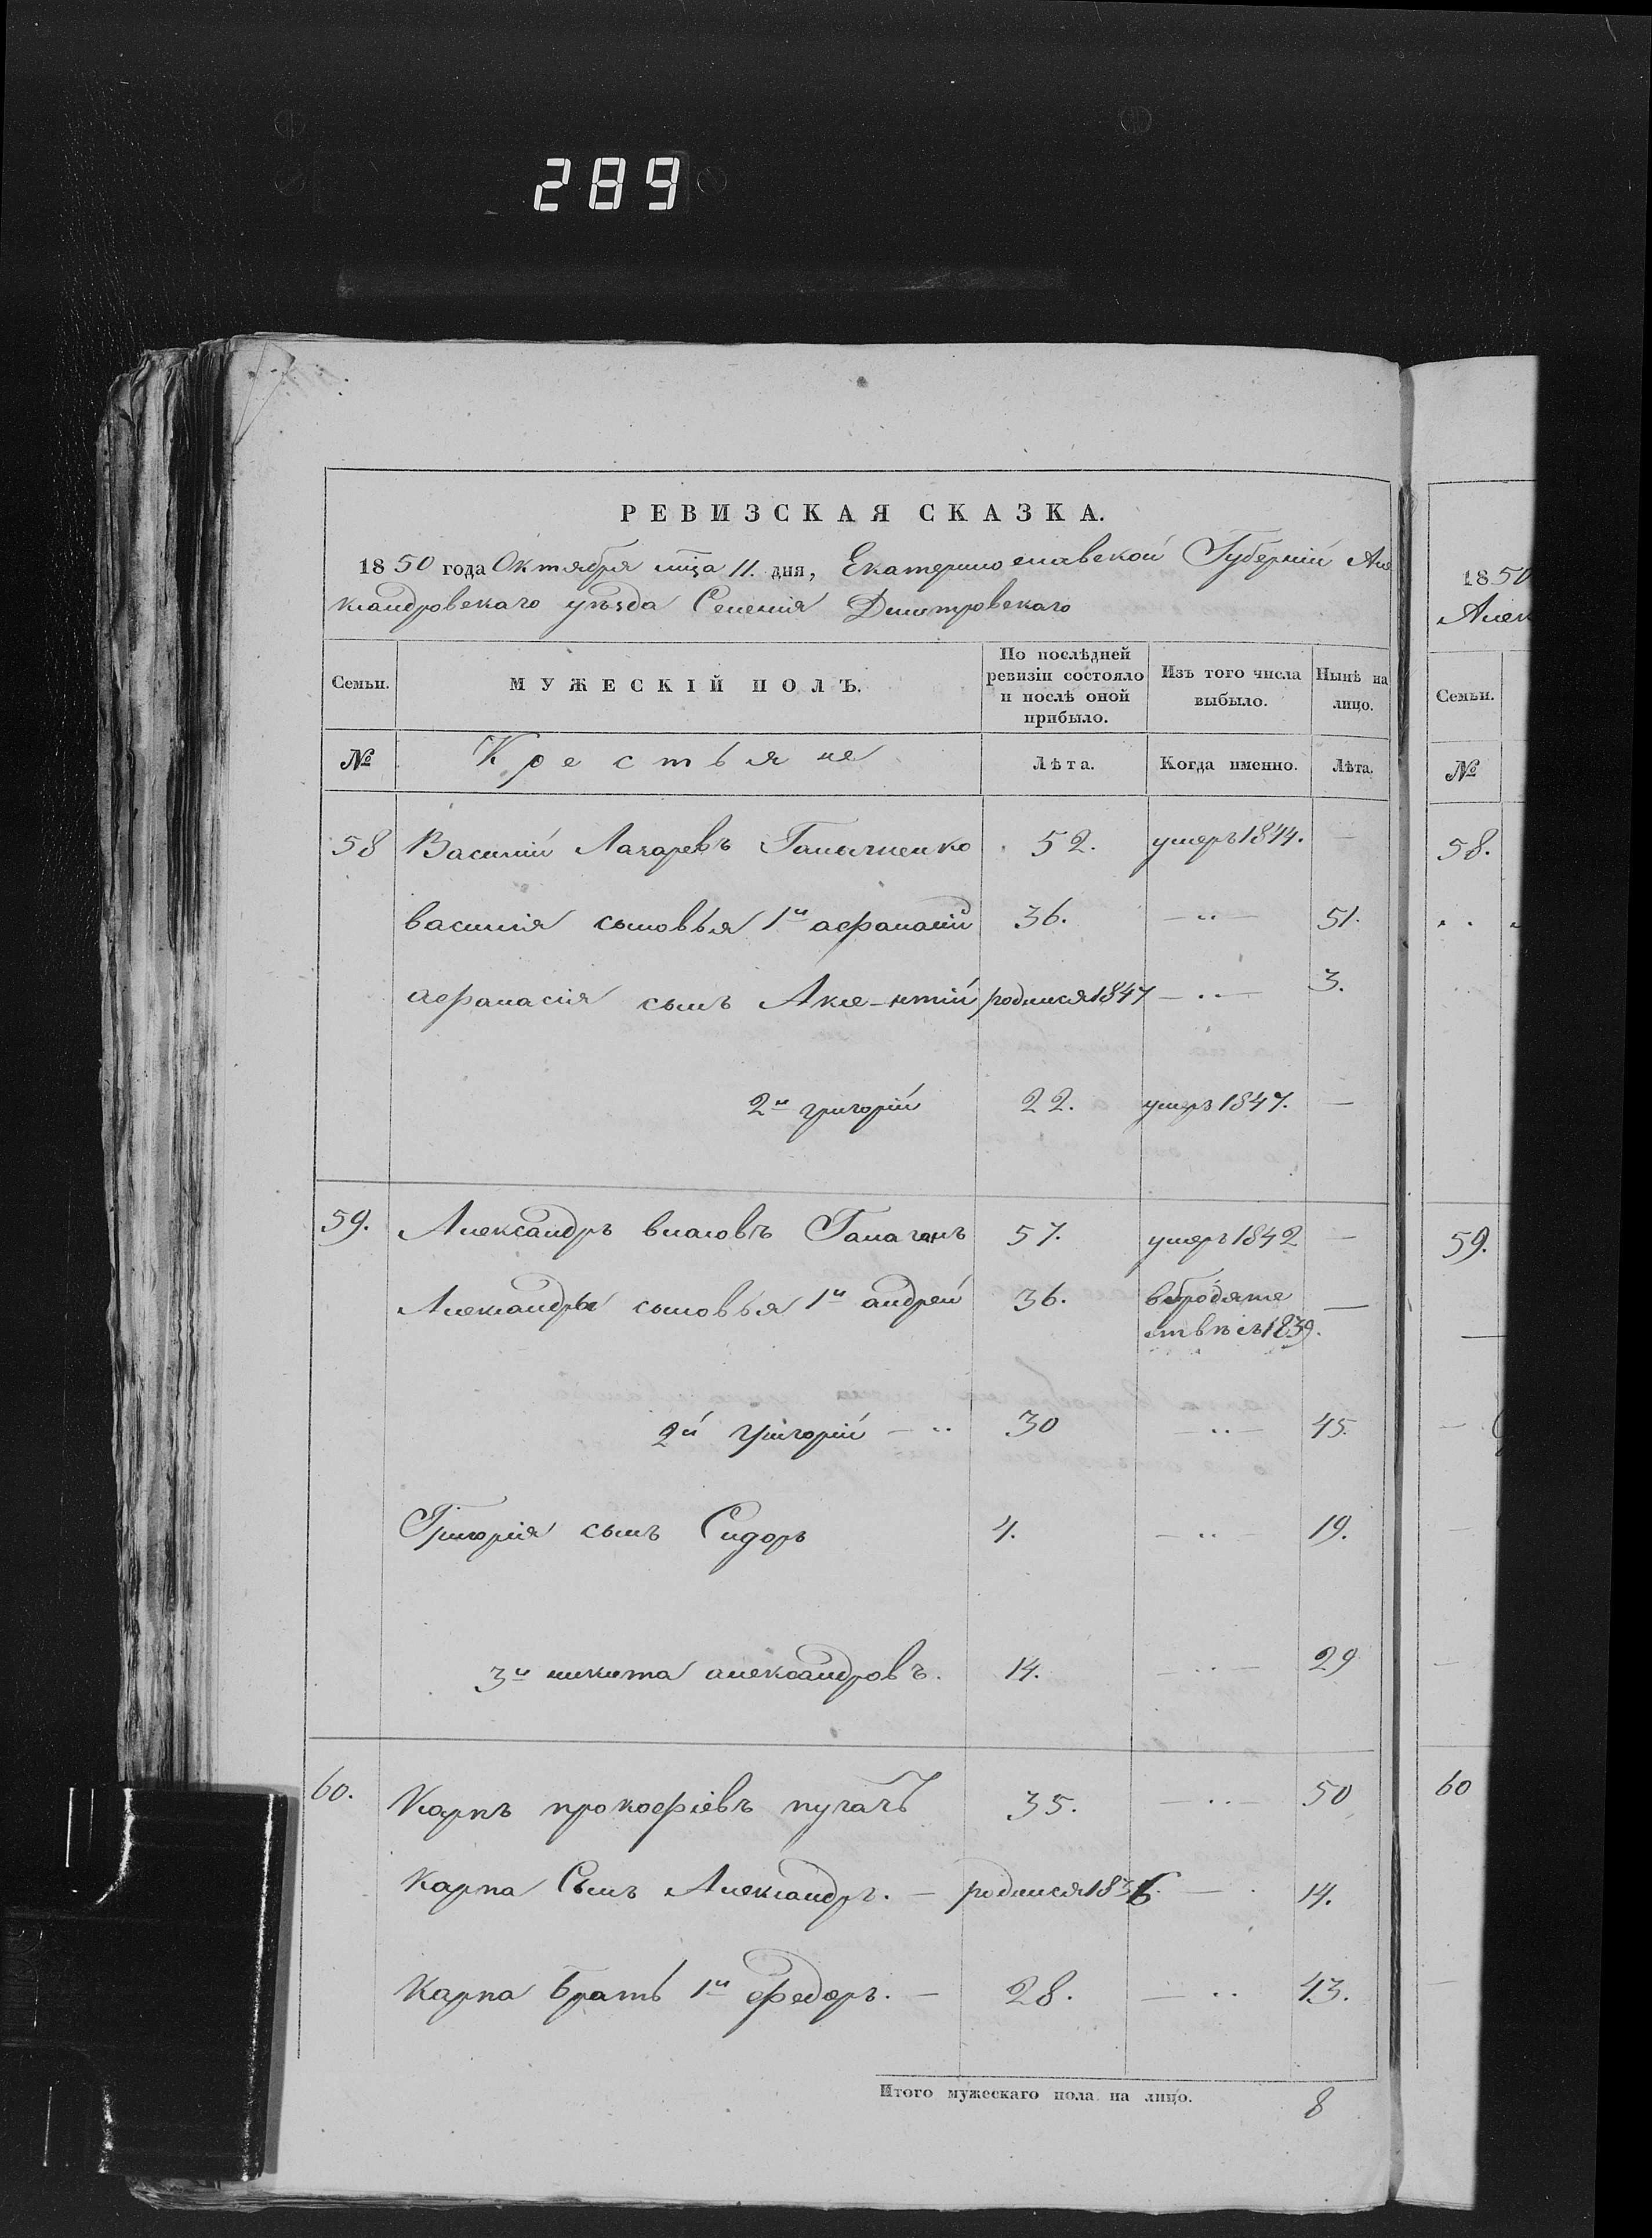 289
РЕВИЗСКАЯ СКАЗКА.
1850 года Октября мца 11. дня, Екатеринославской Губернiи Але
ксандровскаго уѣзда Селенiя Дмитровскаго
1850
Алек
Семьи.
МУЖЕСКIЙ ПОЛЪ.
По послѣдней ревизiи состояло и послѣ оной прибыло.
Изъ того числа выбыло.
Нынѣ на лицо.
Семьи.
№
Крестьяне
Лѣта.
Когда именно.
Лѣта.
№
58 Василiй Лазаревъ 52. умеръ 1844. —
58.
василiя сыновья 1й афанасiй 36. — „ — 51.
афанасiя сынъ Аксе-нтiй родился 1847 — „ — 3.
2й григорiй 22. умеръ 1847. —
59. Александръ власовъ Галаганъ 57. умеръ 1842 —
59.
Александра сыновья 1й андрей 36. вбродяже
ствѣ съ 1839. —
2й григорiй — „ 30 — „ — 45.
Григорiя сынъ Сидоръ 4. — „ — 19.
3й никита александровъ. 14. — „ — 29
60. Карпъ прокофiевъ пугачъ 35. — „ — 50
60
Карпа Сынъ Александръ. — родился 1836 — . 14.
Карпа братъ 1й федоръ. — 28. — „ 43.
Итого мужескаго пола на лицо. 8